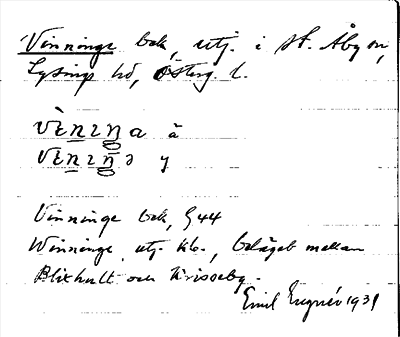 Vinninge bak, utj. i St. Åby sn,
Lysings hd, Österg. l.
vɛ̀nɪŋa ä
vɛnɪŋə y
Vinninge bak, § 44
Winninge, utj. Kb., beläget mellan
Blixhult och Krisseby.
Emil 1931